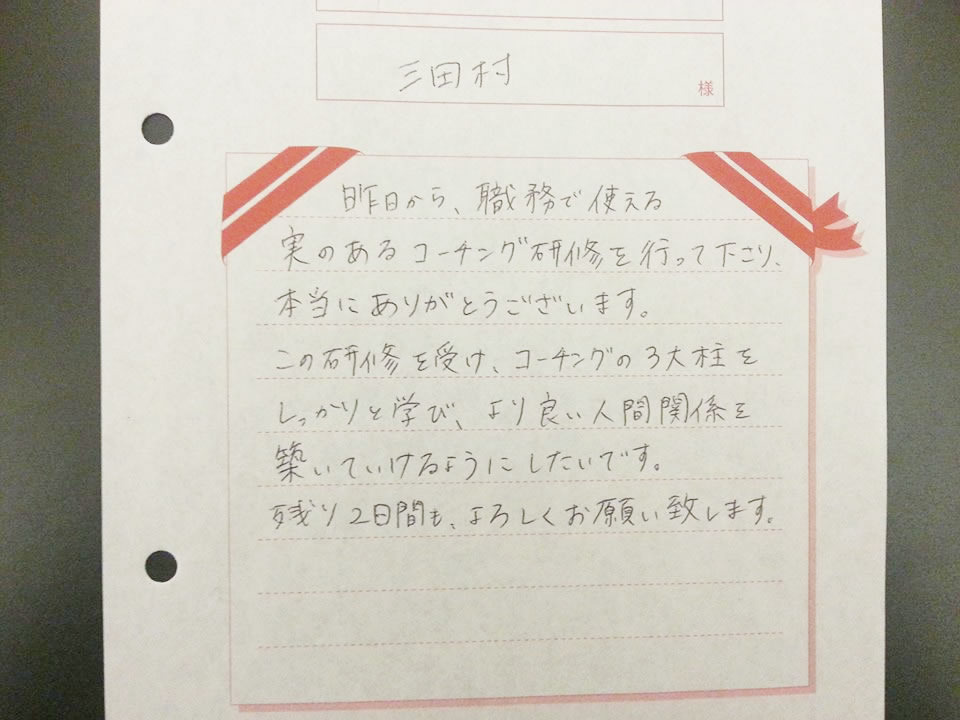 三田村
様
昨日から、職務で使える
実のあるコーチング研修を行って下さり、
本当にありがとうございます。
この研修を受け、コーチングの3大柱を
しっかりと学び、より良い人間関係を
築いていけるようにしたいです。
残り2日間も、よろしくお願い致します。